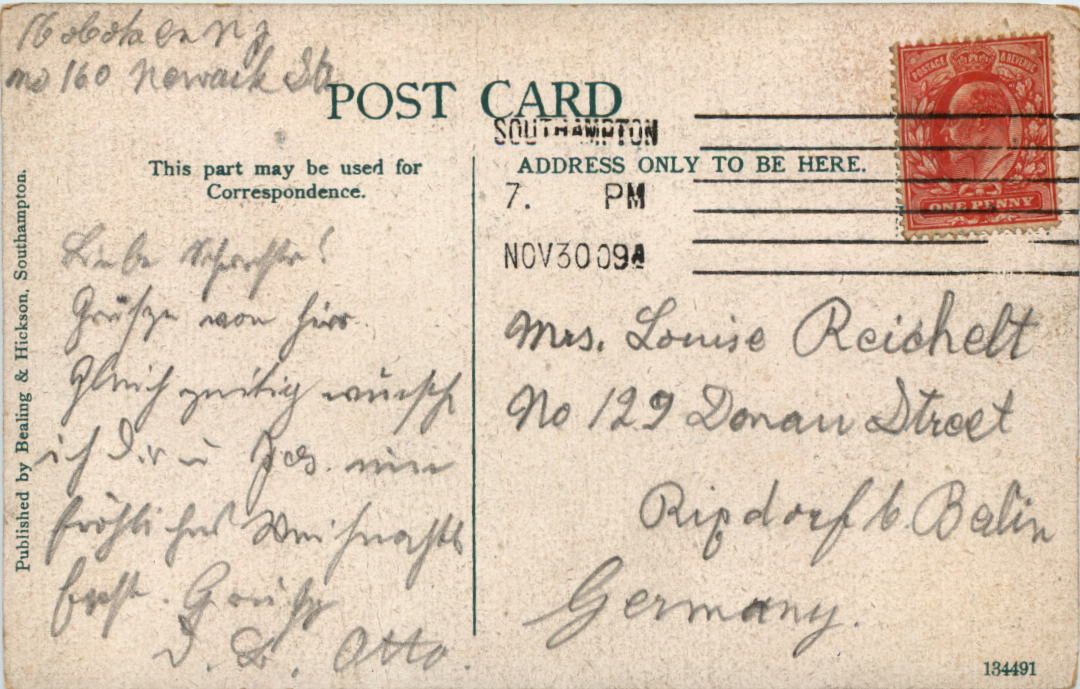 Hoboken N J
No 160 Newark Str
POST CARD
SOUTHAMPTON
7. PM
NOV 30 09
POSTAGE & REVENUE
ONE PENNY
This part may be used for
Correspondence.
ADDRESS ONLY TO BE HERE.
Published by Bealing & Hickson, Southampton.
Liebe Schwester!
Grüße von hier
Gleich zeitig wünsche
ich Dir u ein
fröhliches Weihnachts
fest. Grüße
D. B. Otto.
Mrs. Louise Reichelt
No 129 Donau Street
Rixdorf b. Berlin
Germany.
134491